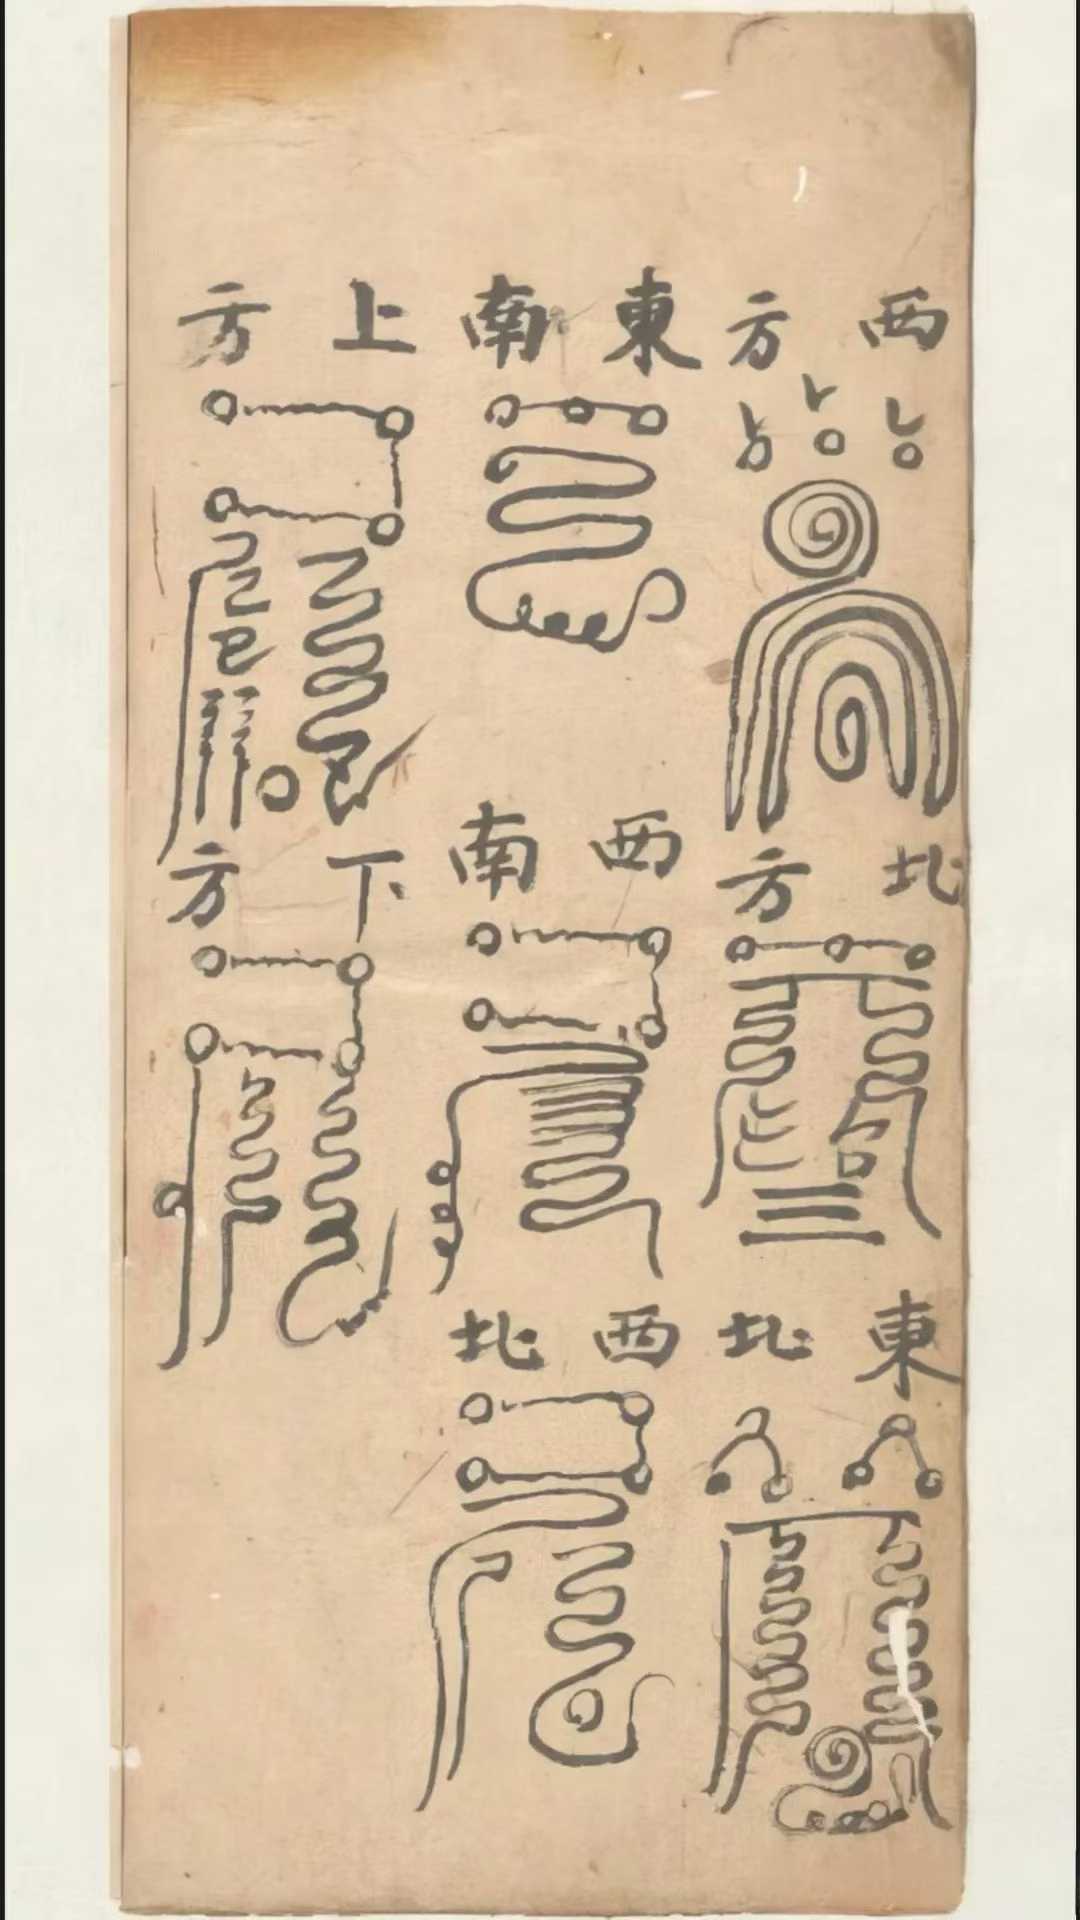 西方
北方
東北
東南
西南
西北
上方
下方